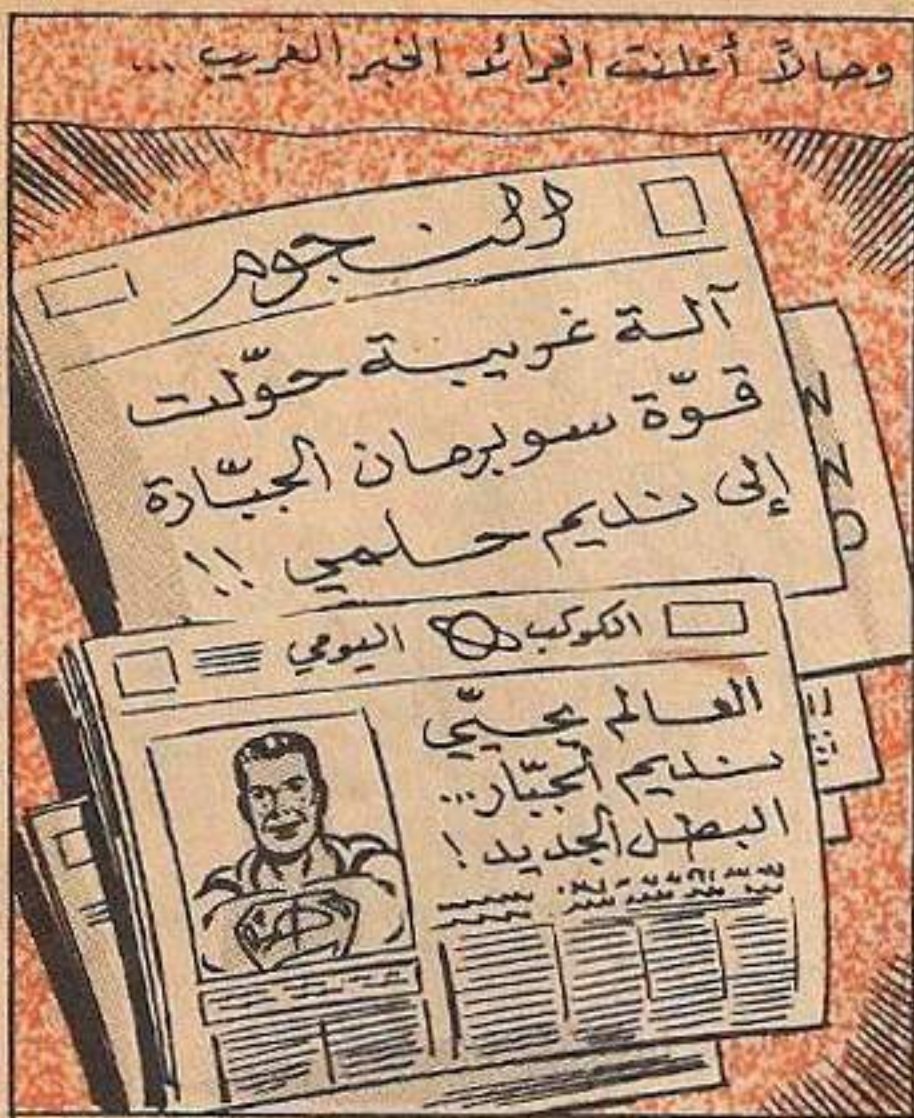 وحالاً أعلنت الجرائد الخبر الغريب ...
النجوم
آلة غريبة حوّلت
قوّة سوبرمان الجبّارة
إلى نديم حلمي !!
الكوكب اليومي
العالم يحيّي
نديم الجبّار...
البطل الجديد !